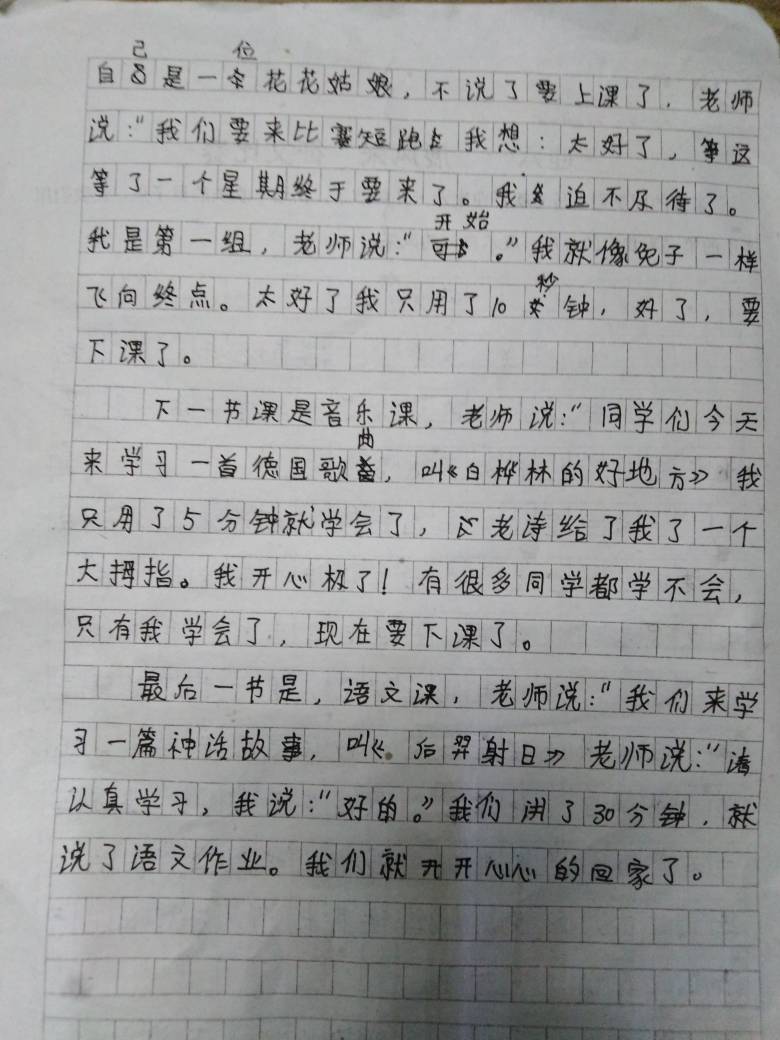 己 位
自是一花花姑娘，不说了要上课了．老师
说："我们要来比赛短跑我想：太好了，这
等了一个星期终于要来了。我迫不及待了。
开始
我是第一组，老师说："。"我就像兔子一样
秒
飞向终点。太好了我只用了10钟，好了，要
下课了。
下一节课是音乐课，老师说："同学们今天
曲
来学习一首德国歌，叫《白桦林的好地方》我
只用了5分钟就学会了，老师给了我了一个
大拇指。我开心极了！有很多同学都学不会，
只有我学会了，现在要下课了。
最后一节是，语文课，老师说："我们来学
习一篇神话故事，叫《后羿射日》老师说："请
认真学习，我说："好的。"我们用了30分钟，就
说了语文作业。我们就开开心心的回家了。